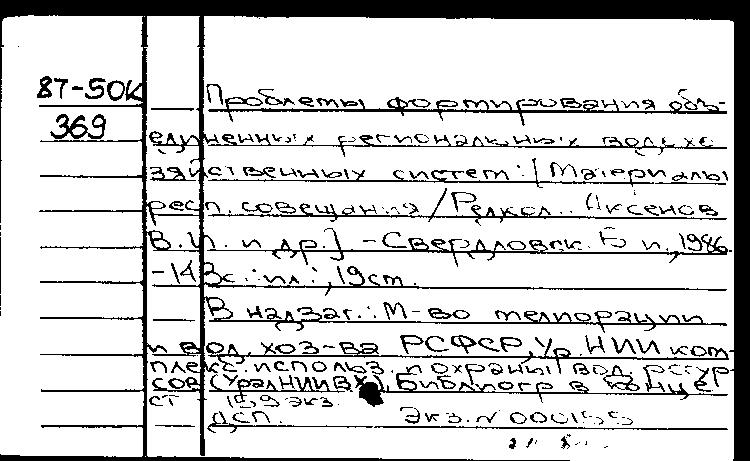 87-50К
369
Проблемы формирования объ-
единенных региональных вод. хо
зяйственных систем: [Материалы
респ. совещания / Редкол.: Аксенов
В.И. и др.] - Свердловск. Б и, 1986.
- 143с.: ил.; 19см.
В надзаг.: М-во мелиорации
и вод. хоз-ва РСФСР, Ур. НИИ ком-
плекс. использ. и охраны вод. ресур-
сов (УралНИИВХ). Библиогр в конце
ст 199 экз.
ДСП. Экз. N 000155